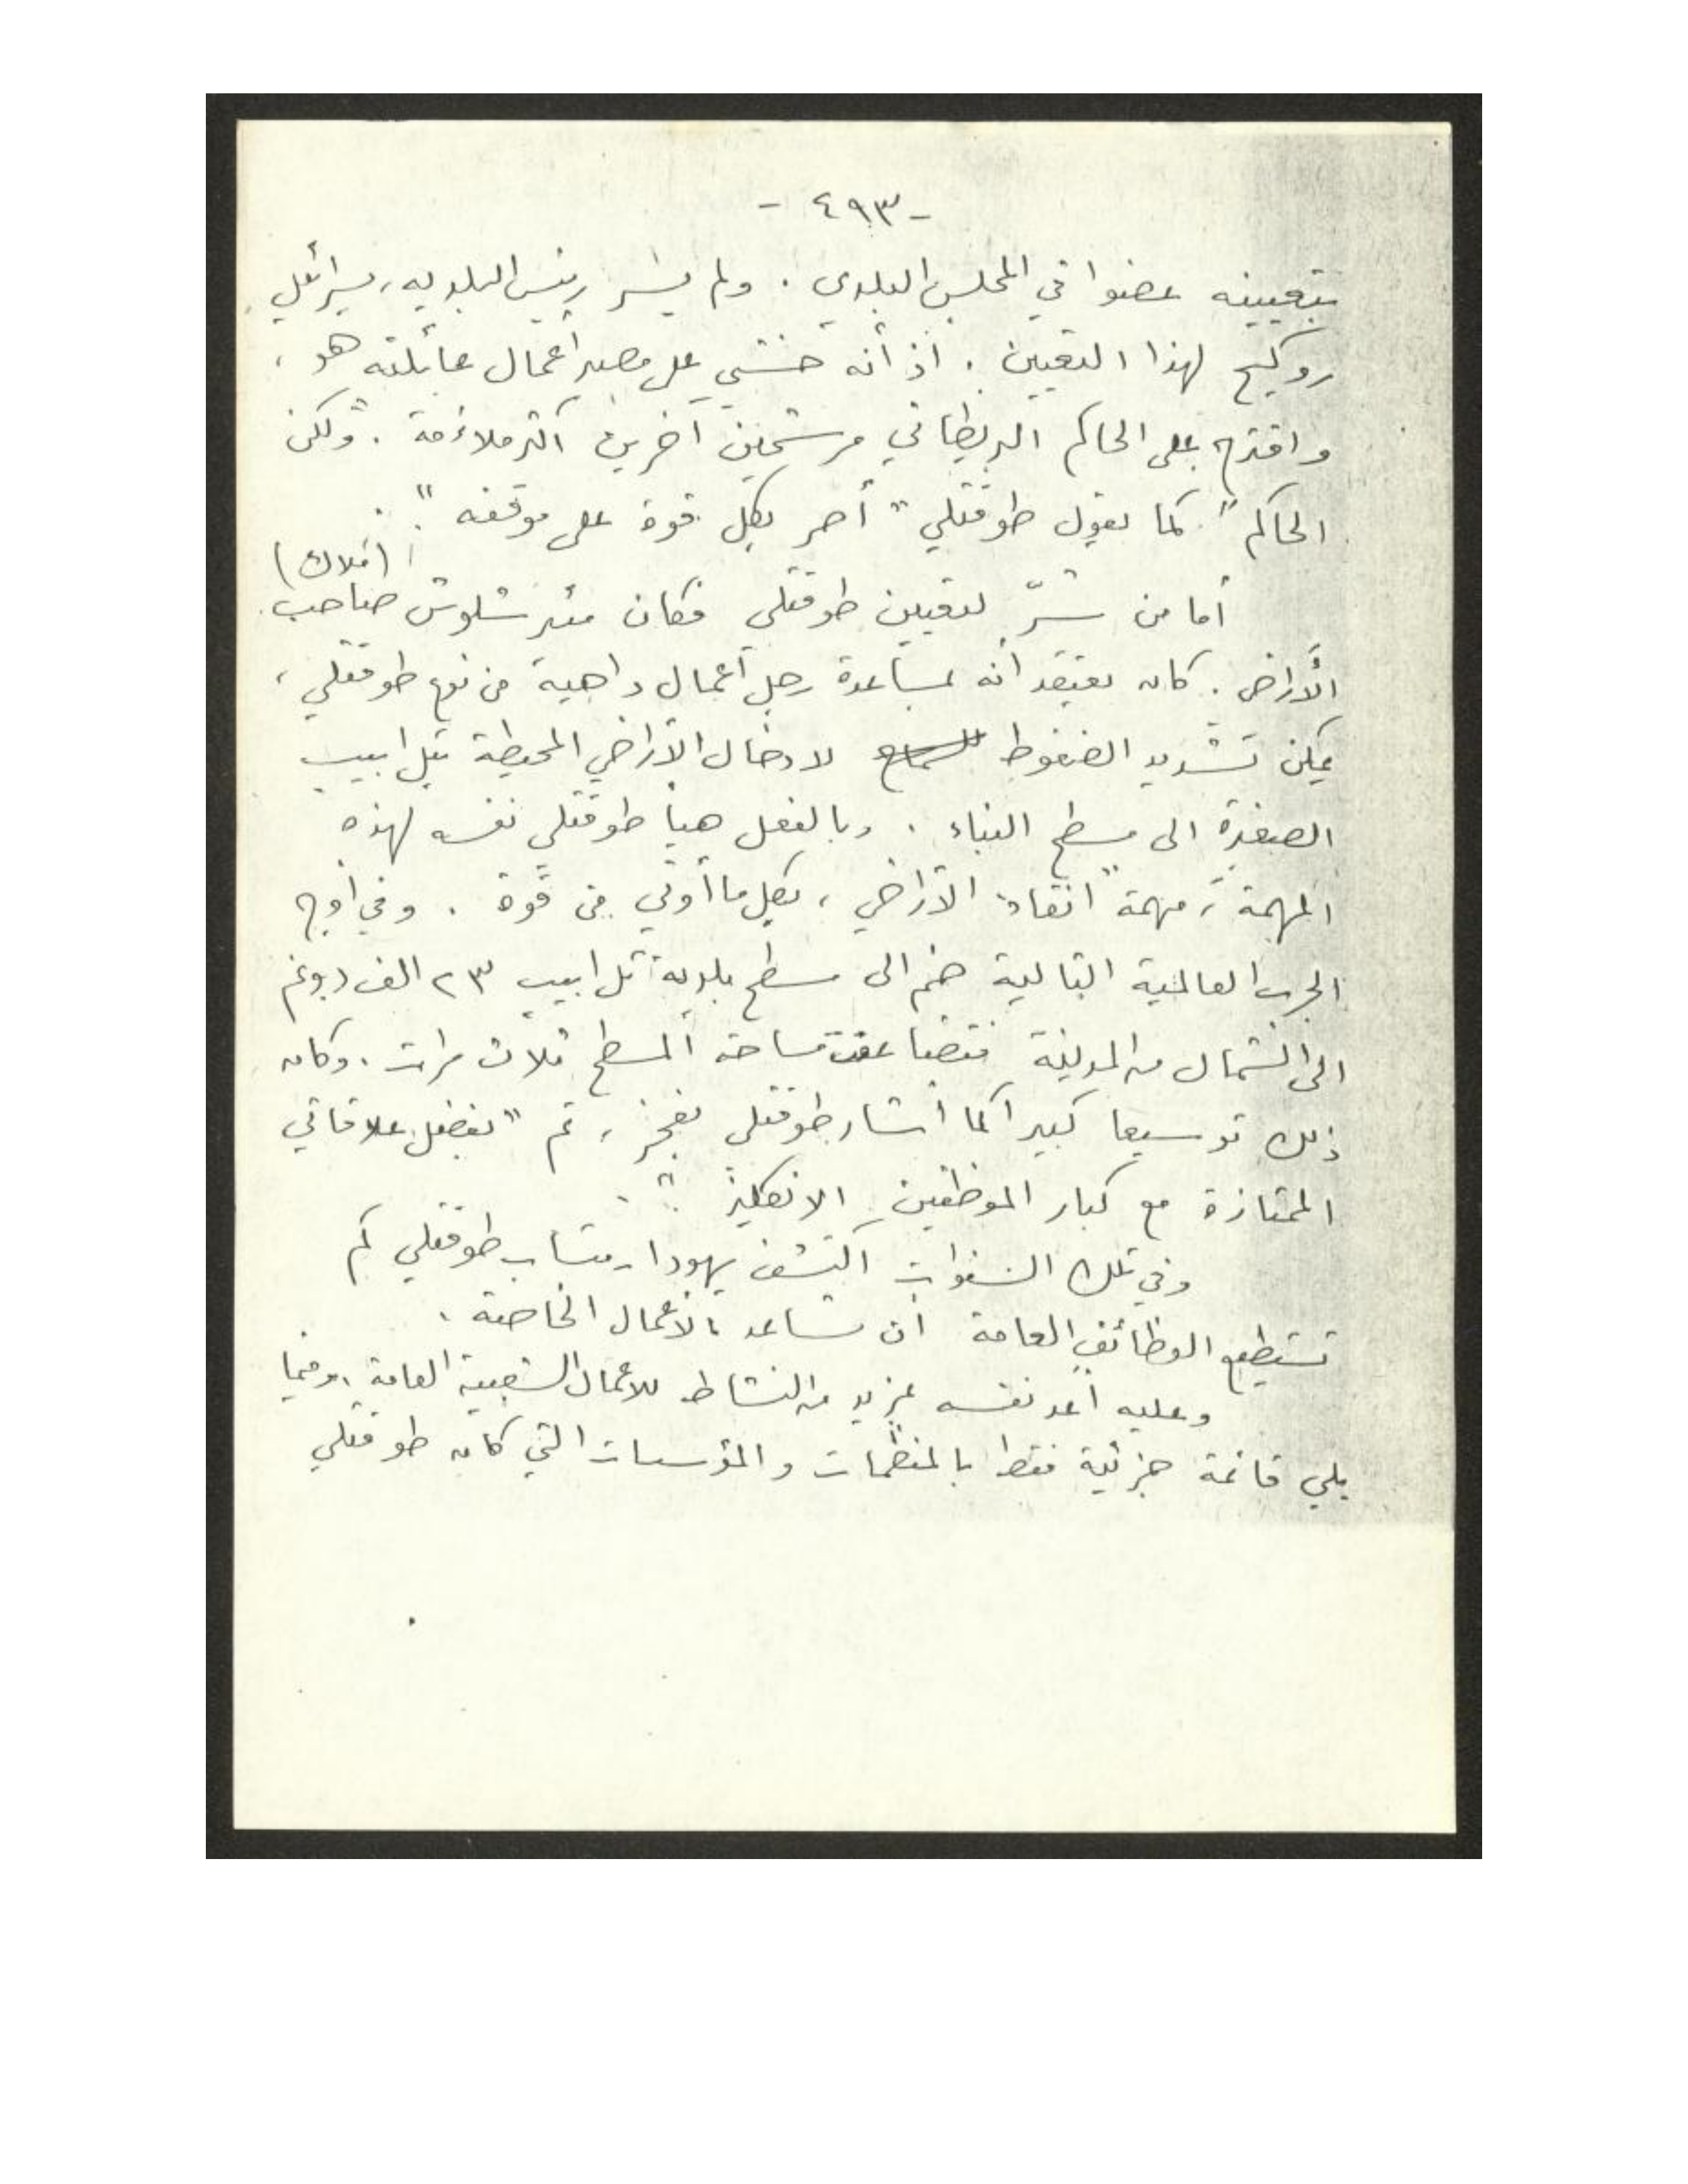 - ٤٩٣ -
بتعيينه عضوا في المجلس البلدي . ولم يسر رئيس البلديه، يسرائيل
روكيح لهذا التعيين . اذ أنه خشي على مصير أعمال عائلته هو ،
واقترح على الحاكم البريطاني مرشحين آخرين اكثر ملاءمة . "ولكن
الحاكم" كما يقول طوقتلي "أصر بكل قوة على موقفه" .
(املاك)
أما من سرّ لتعيين طوقتلي فكان مئير شلوش صاحب
الأراضي . كان يعتقد أنه بمساعدة رجل أعمال داهية من نوع طوقتلي ،
يمكن تشديد الضغوط للسماح لادخال الأراضي المحيطة بتل ابيب
الصغيرة الى مسطح البناء . وبالفعل هيأ طوقتلي نفسه لهذه
المهمة ، مهمة "انقاذ" الأراضي ، بكل ما أوتي من قوة . وفي أوج
الحرب العالمية الثانية ضم الى مسطح بلدية تل ابيب ٢٣ الف دونم
الى الشمال من المدينة فتضاعفت مساحة المسطح ثلاث مرات . وكان
ذلك توسيعا كبيرا كما أشار طوقتلي بفخر ، تم "بفضل علاقاتي
الممتازة مع كبار الموظفين الانكليز" .
وفي تلك السنوات اكتشف يهودا رمتساب طوقتلي كم
تستطيع الوظائف العامة ان تساعد بالأعمال الخاصة .
وعليه أعد نفسه بمزيد من النشاط للاعمال الشعبية العامة . وفيما
يلي قائمة جزئية فقط بالمنظمات والمؤسسات التي كان طوقتلي